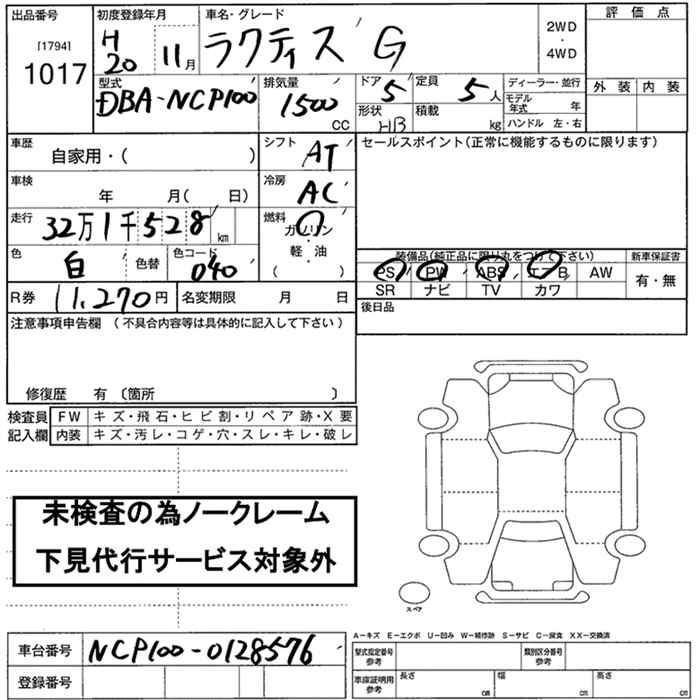 出品番号 初度登録年月 車名・グレード 評価点
[1794] H 2WD
1017 20 11月 ラクティス G ・
4WD
型式 排気量 ドア 定員 ディーラー・並行 外装 内装
DBA-NCP100 1500 CC 5 5人 モデル年式 年
形状 HB 積載 kg ハンドル 左・右
車歴 シフト セールスポイント(正常に機能するものに限ります)
自家用・( ) AT
車検 冷房
年 月( 日) AC
走行 燃料
32万1千528km ガソリン・軽・油
( )
色 色コード 装備品(純正品に限り丸をつけて下さい) 新車保証書
白 色替 040 PS PW ABS エアB AW 有・無
SR ナビ TV カワ
R券 11,270円 名変期限 月 日 後日品
注意事項申告欄 (不具合内容等は具体的に記入して下さい)
修復歴 有 〔箇所 〕
検査員 FW キズ・飛石・ヒビ割・リペア跡・X要
記入欄 内装 キズ・汚レ・コゲ・穴・スレ・キレ・破レ
未検査の為ノークレーム
下見代行サービス対象外
スペア
A-キズ E-エクボ U-凹み W-補修跡 S-サビ C-腐食 XX-交換済
車台番号 NCP100-0128576 型式指定番号 参考 類別区分番号 参考
登録番号 車庫証明用 参考 長さ cm 幅 cm 高さ cm